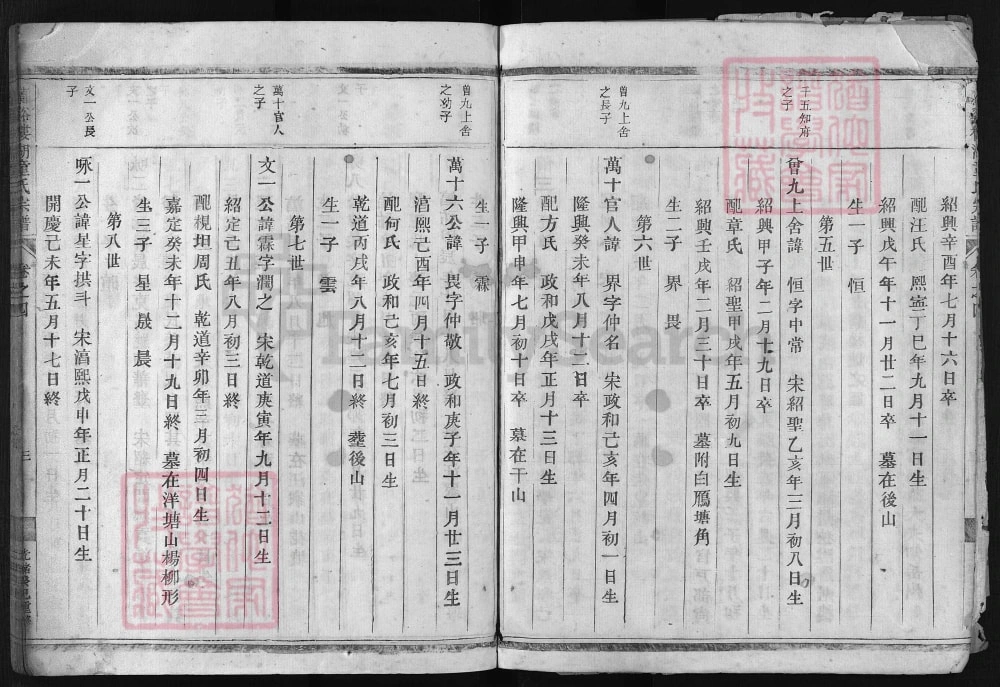 紹興辛酉年七月十六日卒
配汪氏 熙寧丁巳年九月十一日生
紹興戊午年十一月廿二日卒 墓在後山
生一子 恒
第五世
十五知府之子
曾九上舍諱 恒字中常 宋紹聖乙亥年三月初八日生
紹興甲子年二月十九日卒
配章氏 紹聖甲戌年五月初九日生
紹興壬戌年二月三十日卒 墓附白鴈塘角
生二子 界 畏
第六世
曾九上舍之長子
萬十官人諱 界字仲名 宋政和己亥年四月初一日生
隆興癸未年八月十二日卒
配方氏 政和戊戌年正月十三日生
隆興甲申年七月初十日卒 墓在干山
生一子 霖
曾九上舍之幼子
萬十六公諱 畏字仲敬 政和庚子年十一月廿三日生
湻熙己酉年四月十五日終
配何氏 政和己亥年七月初三日生
乾道丙戌年八月十二日終 塟後山
生一子 雲
第七世
萬十官人之子
文一公諱霖字潤之 宋乾道庚寅年九月十二日生
紹定己丑年八月初三日終
配梘坦周氏 乾道辛卯年三月初四日生
嘉定癸未年十二月十九日終 墓在洋塘山楊柳形
生三子 星 晟 晨
第八世
文一公長子
咏一公諱星字拱斗 宋湻熙戊申年正月二十日生
開慶己未年五月十七日終
童氏宗譜 卷之四
三